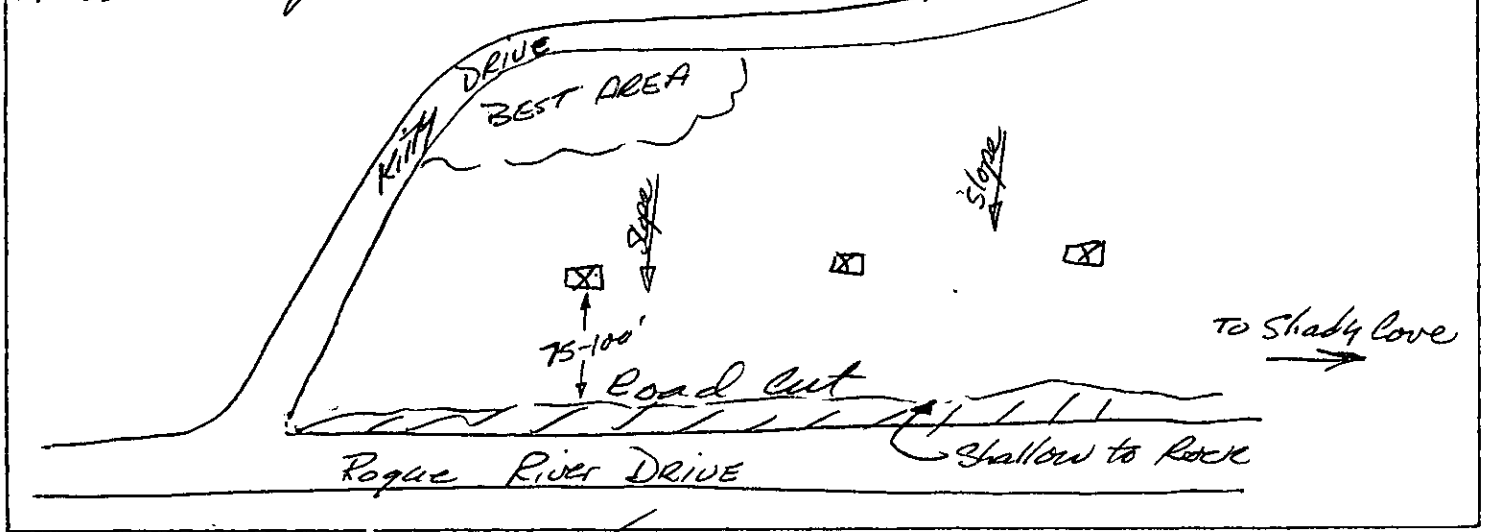 Kitty DRIVE
BEST AREA
Slope
Slope
75-100'
To Shady Cove
Road Cut
Shallow to Rock
Rogue River DRIVE